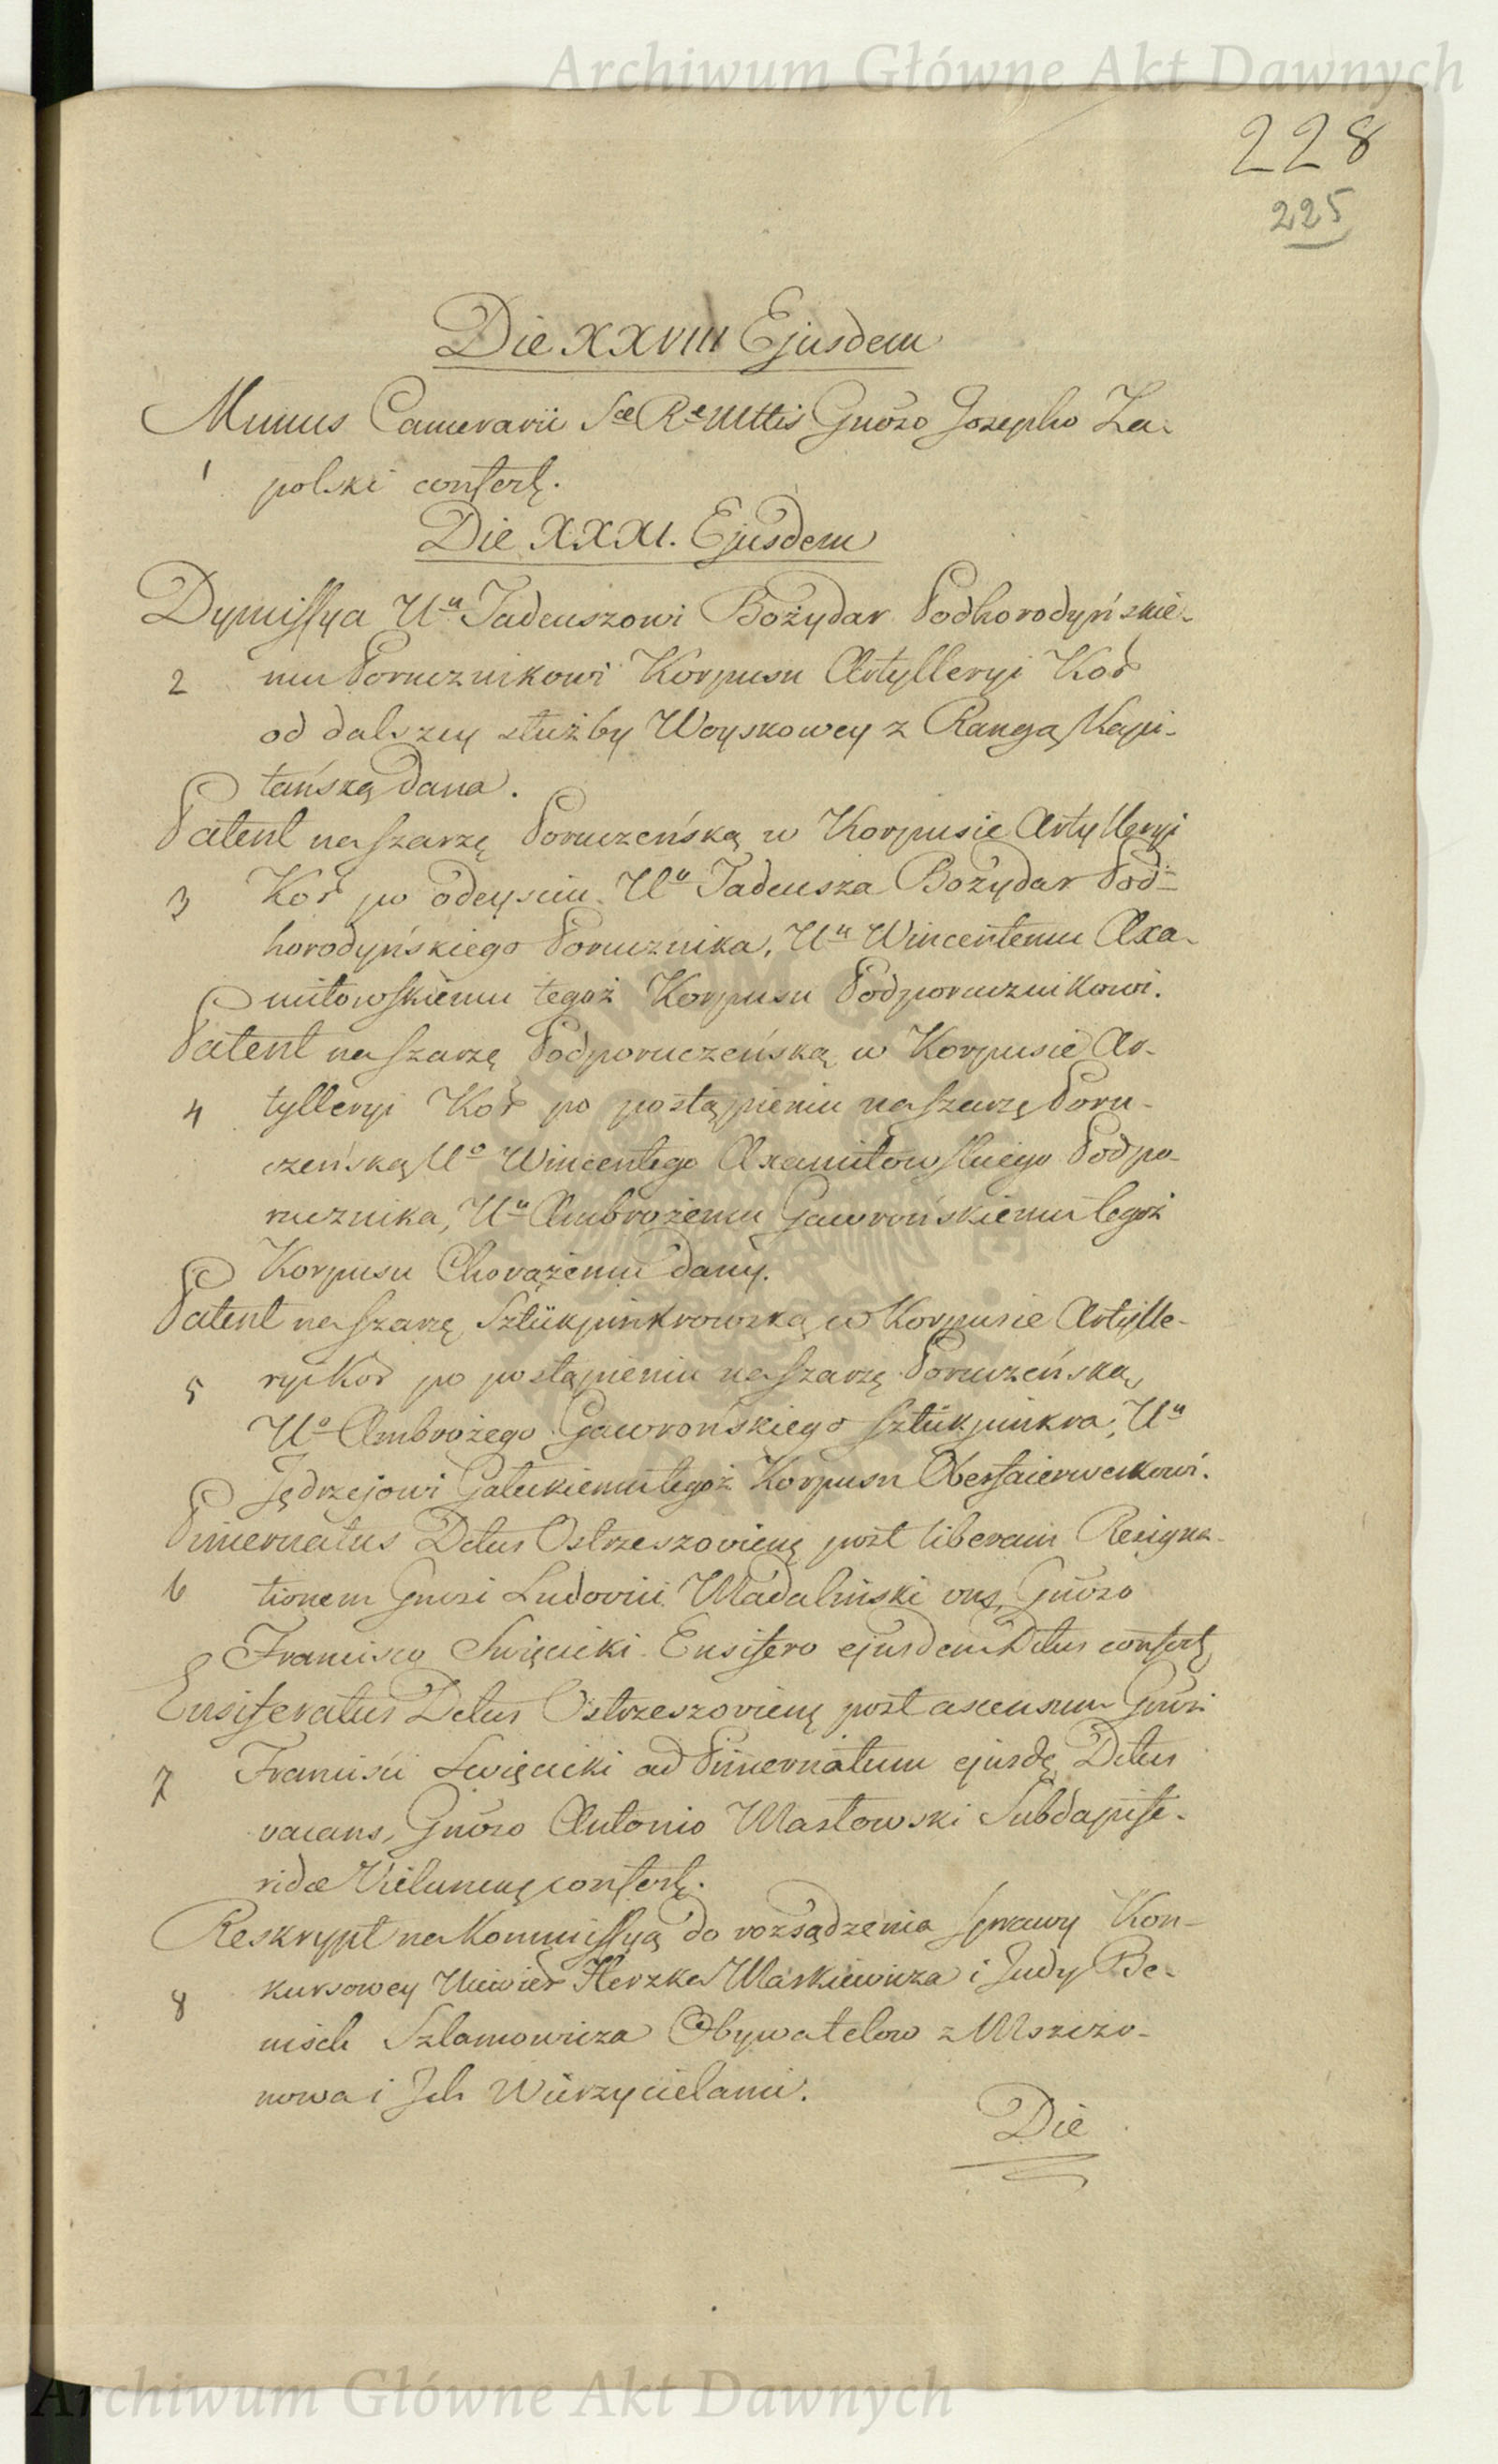 Archiwum Główne Akt Dawnych
228
225
Die XXVIII Ejusdem
Munus Camerarii Sæ Rᵉ Mttis Gnoso Josepho Za-
1 polski confertę.
Die XXXI. Ejusdem
Dymissya Uᵘ Tadeuszowi Bożydar Podhorodyńskie-
2 mu Porucznikowi Korpusu Artylleryi Kor
od dalszey służby Woyskowey z Rangą Kapi-
tańską dana.
Patent na szarżę Poruczeńską w Korpusie Artylleryi
3 Kor po odeysciu Uᵒ Tadeusza Bożydar Pod-
horodyńskiego Porucznika, Uᵘ Wincentemu Axa-
mitowskiemu tegoż Korpusu Podporucznikowi.
Patent na szarżę Podporuczeńską w Korpusie Ar-
4 tylleryi Kor po postąpieniu na szarżę Poru-
czeńską Uᵒ Wincentego Axamitowskiego Podpo-
rucznika, Uᵘ Ambrożemu Gawrońskiemu tegoż
Korpusu Chorążemu dany.
Patent na szarżę Sztükjunkrowską w Korpusie Artylle-
5 ryi Kor po postąpieniu na szarżę Poruczeńską,
Uᵒ Ambrożego Gawrońskiego sztukjunkra, Uᵘ
Jędrzejowi Gałeckiemu tegoż Korpusu Oberfaierwerkowi.
Pincernatus Dctus Ostrzeszovienę post liberam Resigna-
6 tionem Gnosi Ludovici Madalinski vns, Gnoso
Francisco Swięcicki Ensifero ejusdem Dctus confertę
Ensiferatus Dctus Ostrzeszovienę post ascensum Gnosi
7 Francisci Swięcicki ad Pincernatum ejusdę Dctus
vacans, Gnoso Antonio Masłowski Subdapife-
ridæ Vielunenę confertę.
Reskrypt na Kommissyą do rozsądzenia sprawy Kon-
8 kursowey Herzka Markiewicza i Judy Be-
nisch Szlamowicza Obywatelow z Mszczo-
nowa i Jch Wierzycielami.
Die
Archiwum Główne Akt Dawnych